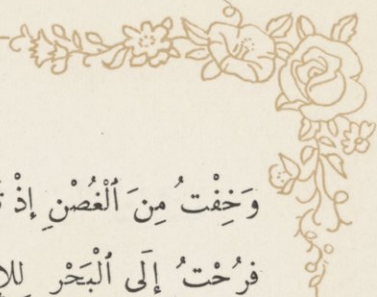 وَخِفْتُ مِنَ ٱلْغُصْنِ إِذْ
فَرُحْتُ إِلَى ٱلْبَحْرِ